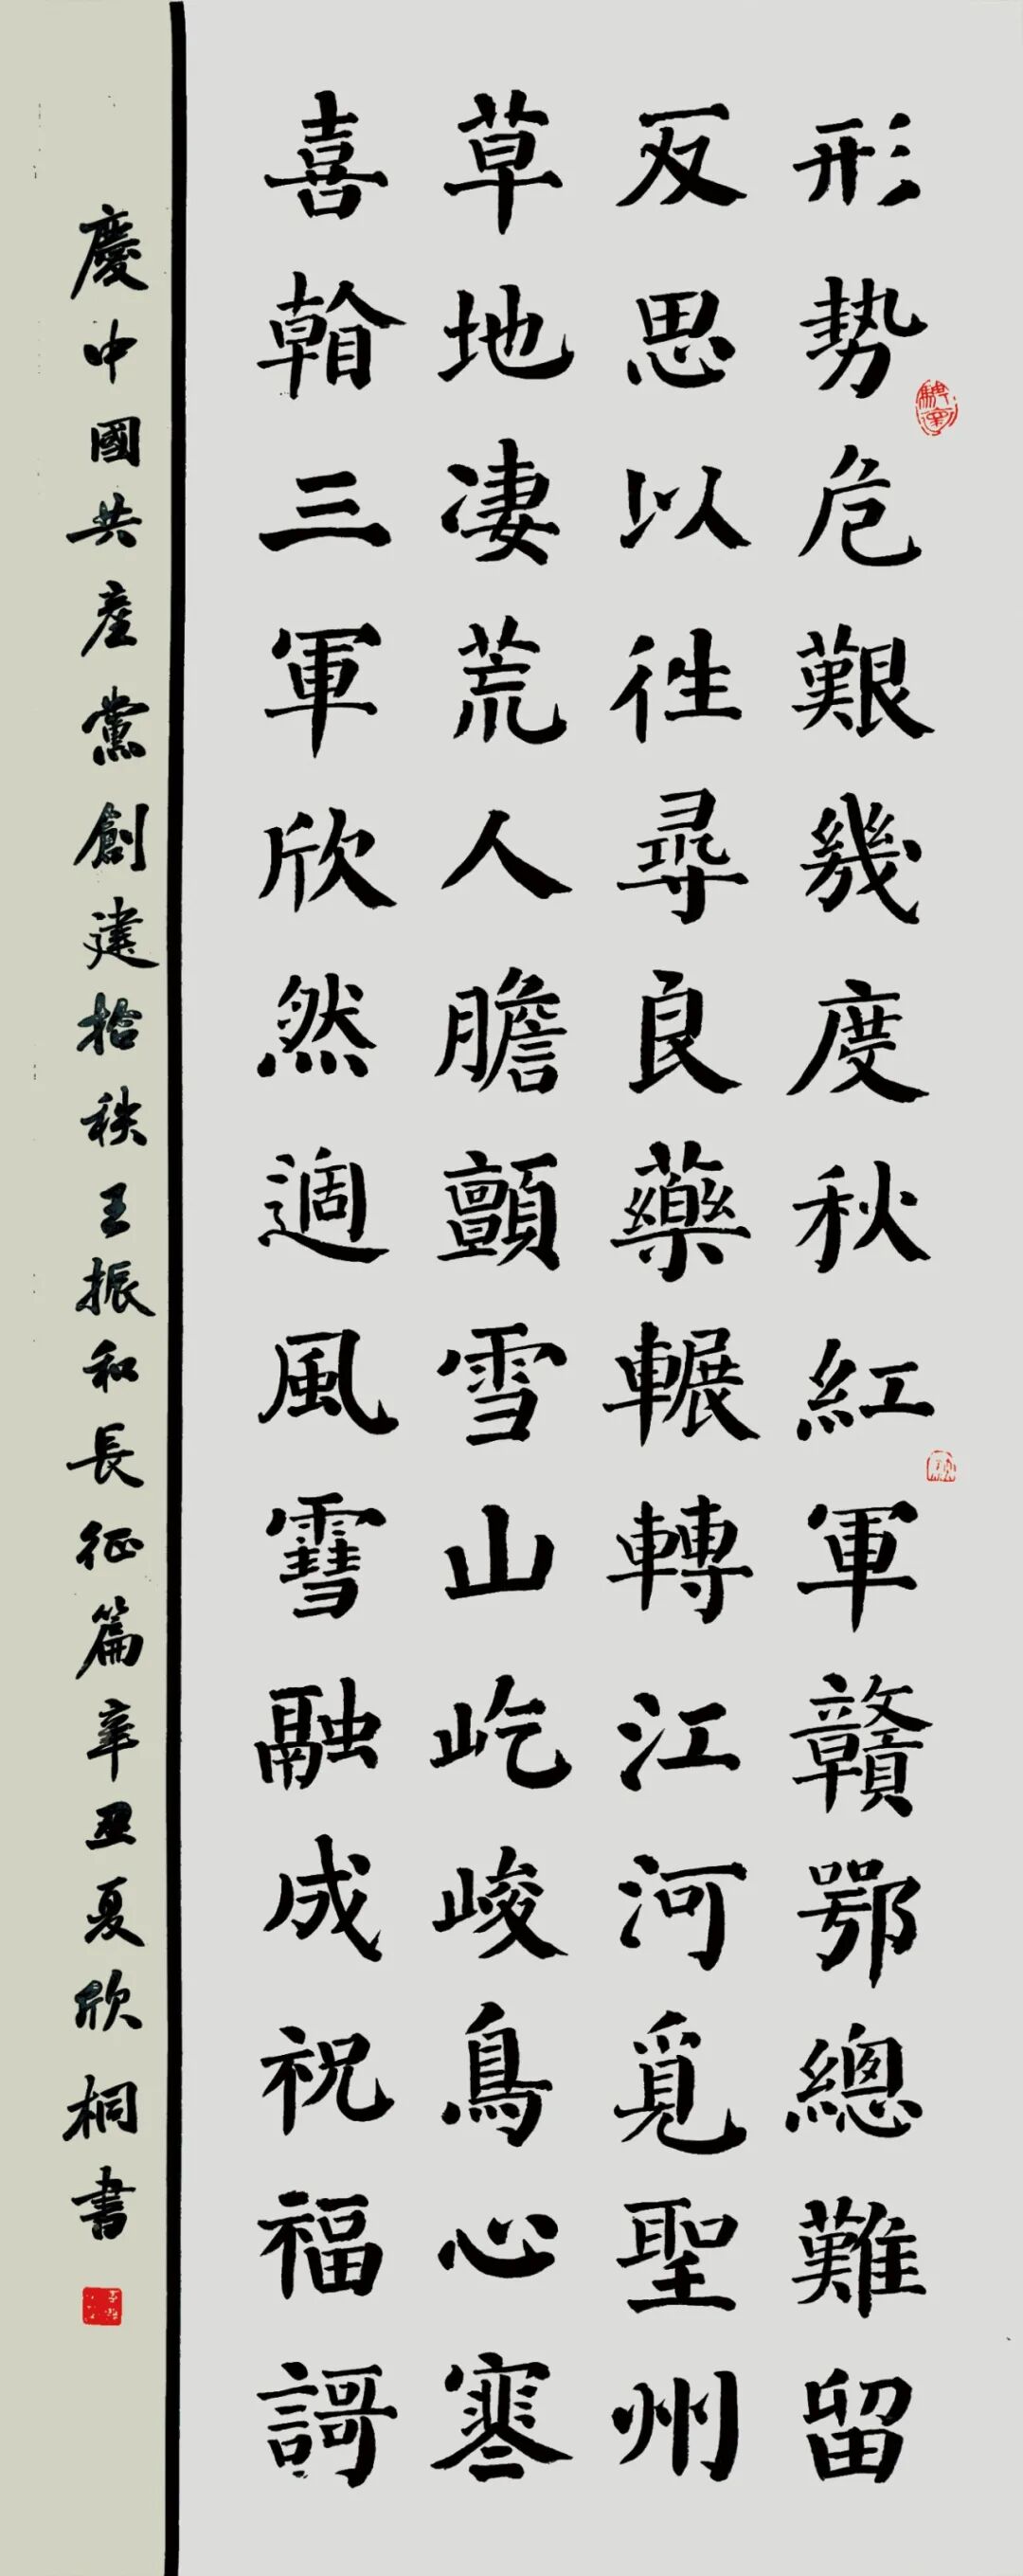 形勢危艱幾度秋紅軍贛鄂總難留
反思以往尋良藥輾轉江河覓聖州
草地凄荒人膽顫雪山屹峻鳥心寒
喜翰三軍欣然適風雪融成祝福謌
慶中國共產黨創建拾秩王振和長征篇辛丑夏欣桐書